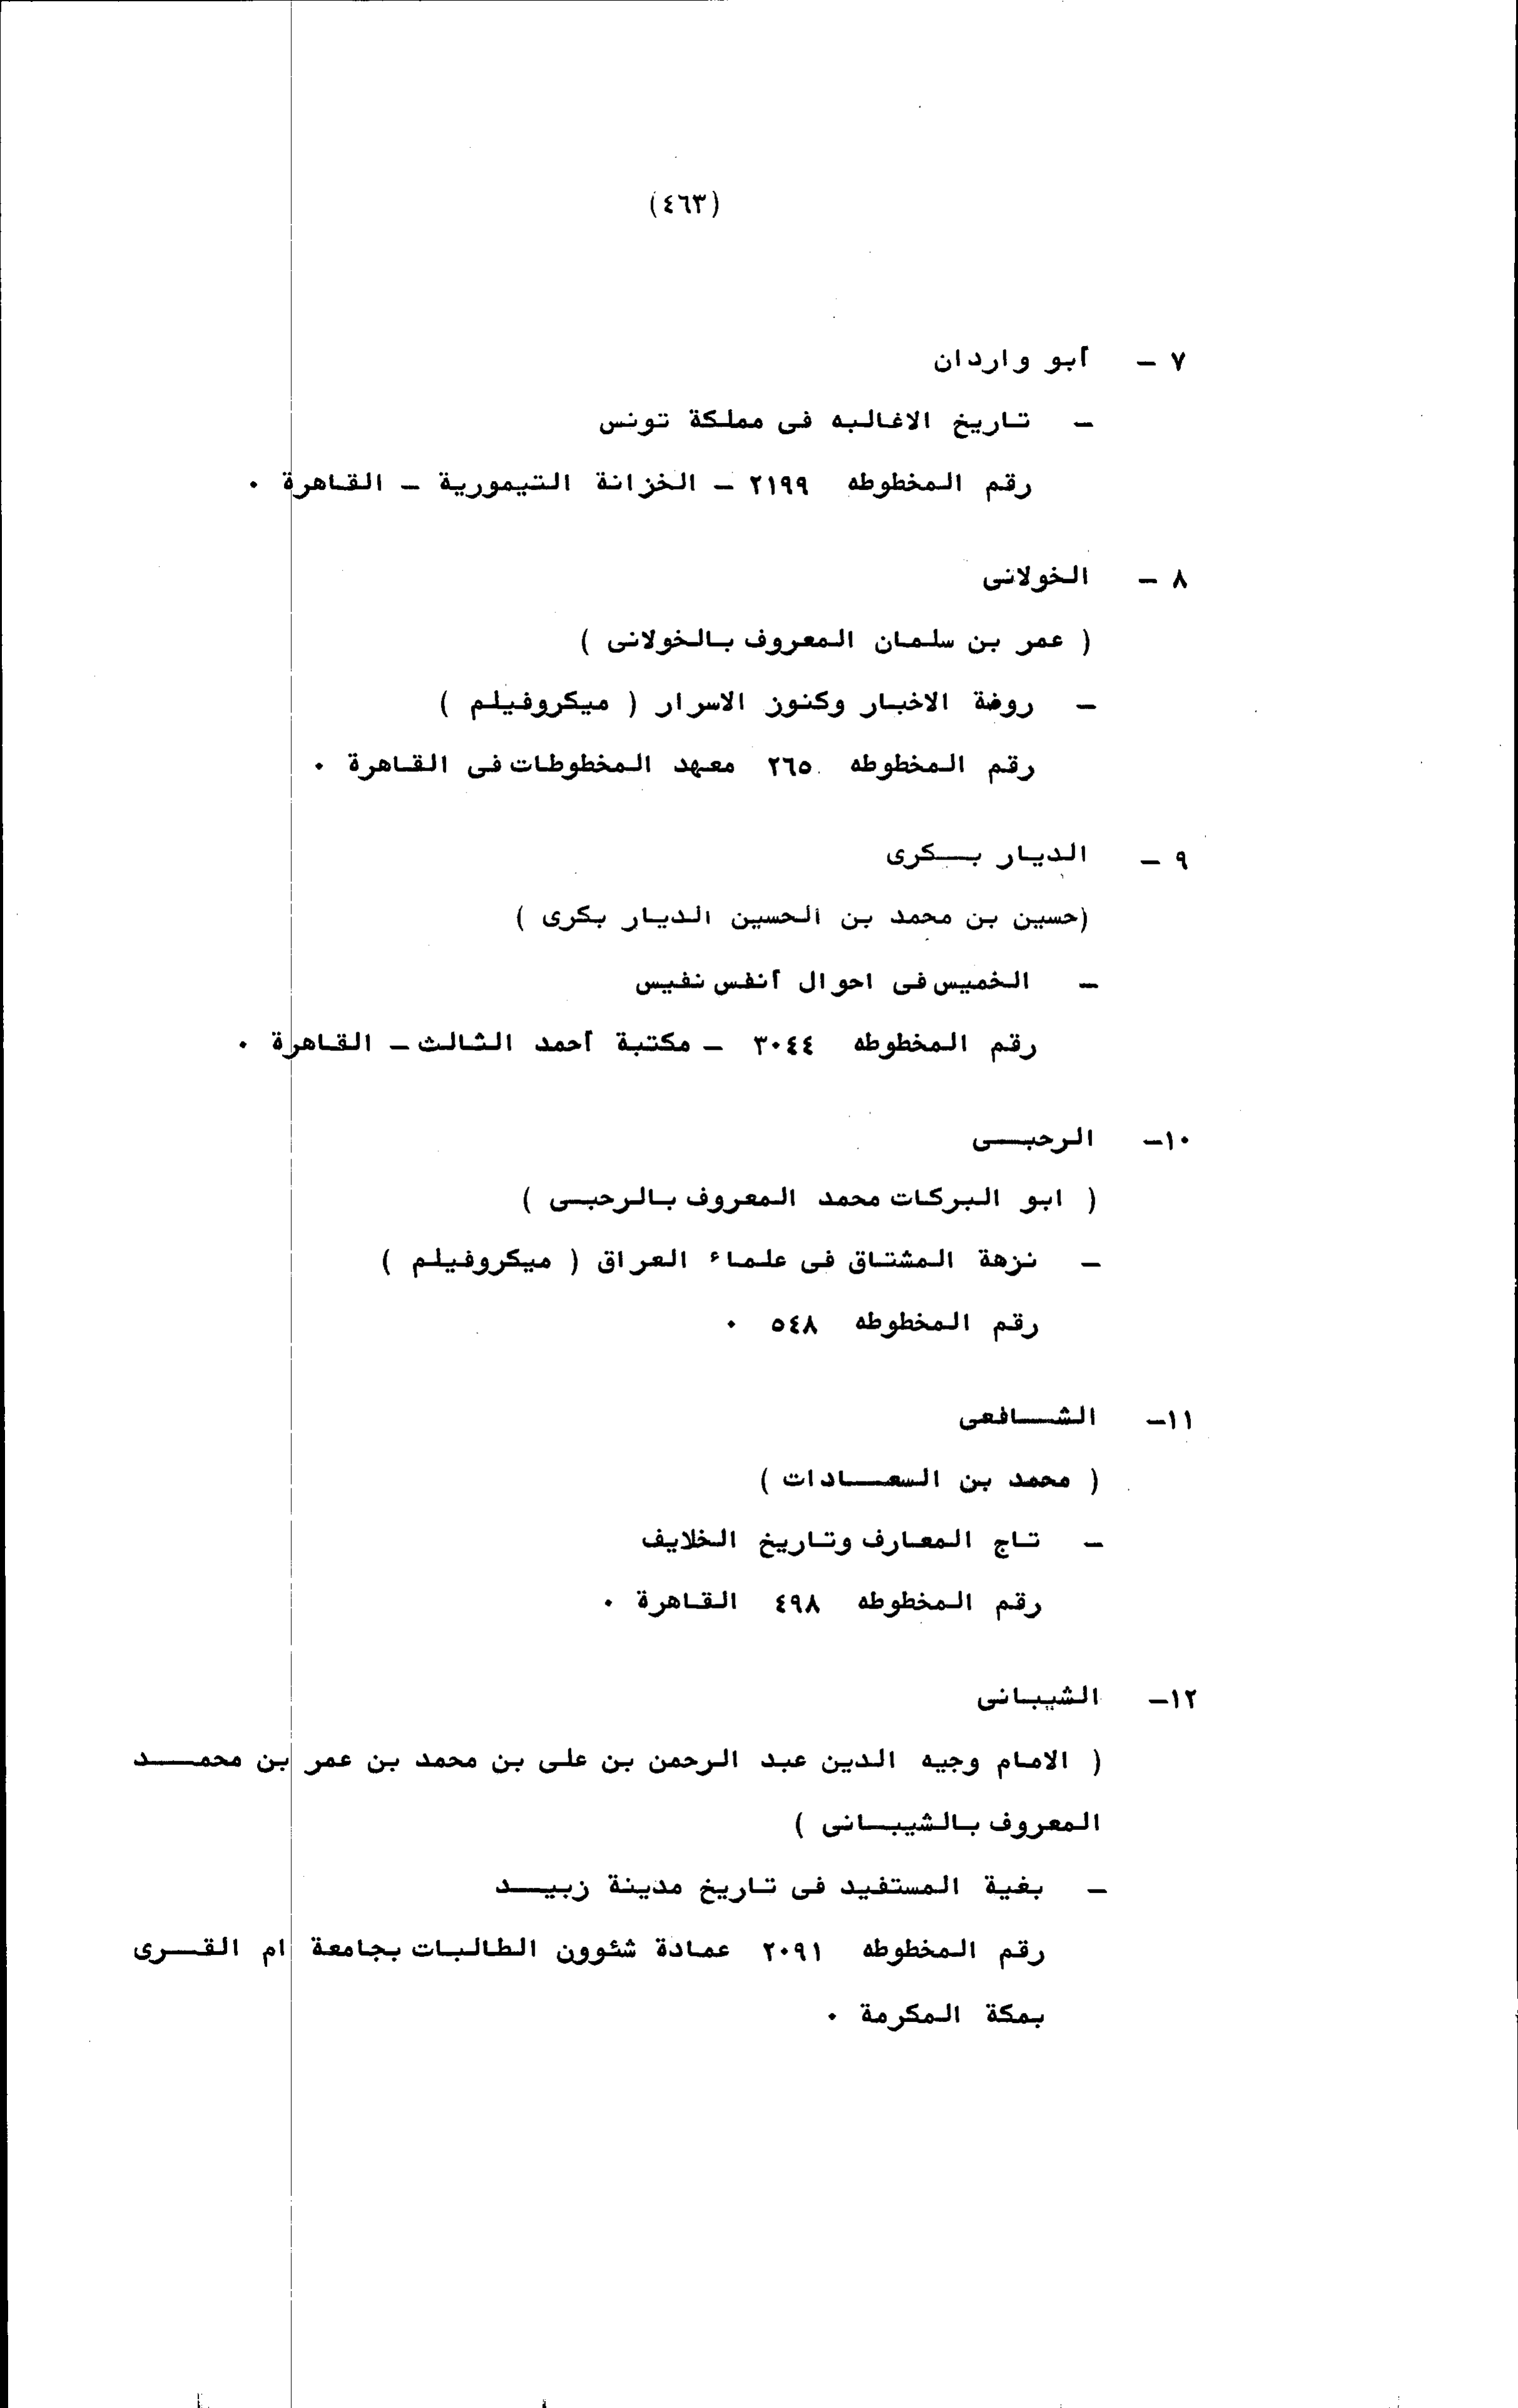 (٤٦٣)
٧ - أبو واردان
- تاريخ الاغالبه فى مملكة تونس
رقم المخطوطه ٢١٩٩ - الخزانة التيمورية - القاهرة ٠
٨ - الخولانى
( عمر بن سلمان المعروف بالخولانى )
- روضة الاخبار وكنوز الاسرار ( ميكروفيلم )
رقم المخطوطه ٢٦٥ معهد المخطوطات فى القاهرة ٠
٩ - الديار بكرى
(حسين بن محمد بن الحسين الديار بكرى )
- الخميس فى احوال أنفس نفيس
رقم المخطوطه ٣٠٤٤ - مكتبة أحمد الثالث - القاهرة ٠
١٠- الرحبى
( ابو البركات محمد المعروف بالرحبى )
- نزهة المشتاق فى علماء العراق ( ميكروفيلم )
رقم المخطوطه ٥٤٨ ٠
١١- الشافعى
( محمد بن السعادات )
- تاج المعارف وتاريخ الخلايف
رقم المخطوطه ٤٩٨ القاهرة ٠
١٢- الشيبانى
( الامام وجيه الدين عبد الرحمن بن على بن محمد بن عمر بن محمد
المعروف بالشيبانى )
- بغية المستفيد فى تاريخ مدينة زبيد
رقم المخطوطه ٢٠٩١ عمادة شئوون الطالبات بجامعة ام القرى
بمكة المكرمة ٠